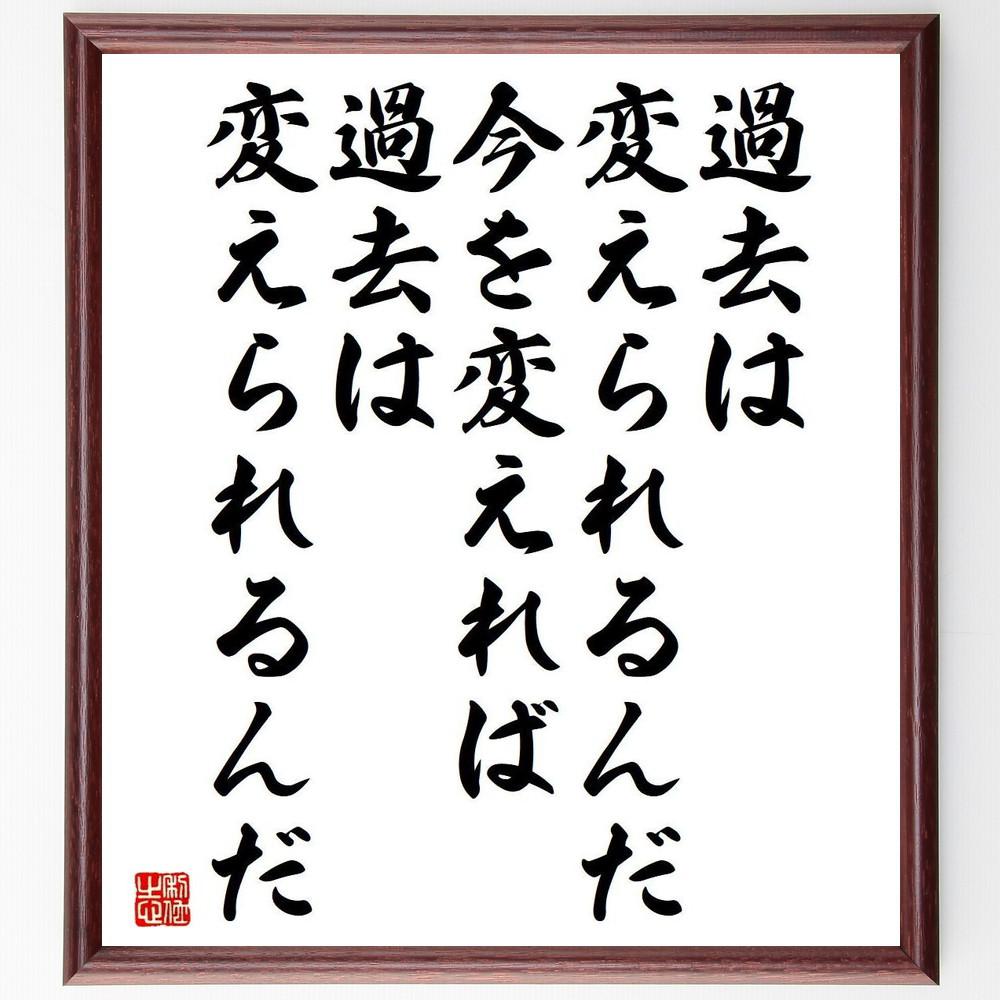 過去は
変えられるんだ
今を変えれば
過去は
変えられるんだ